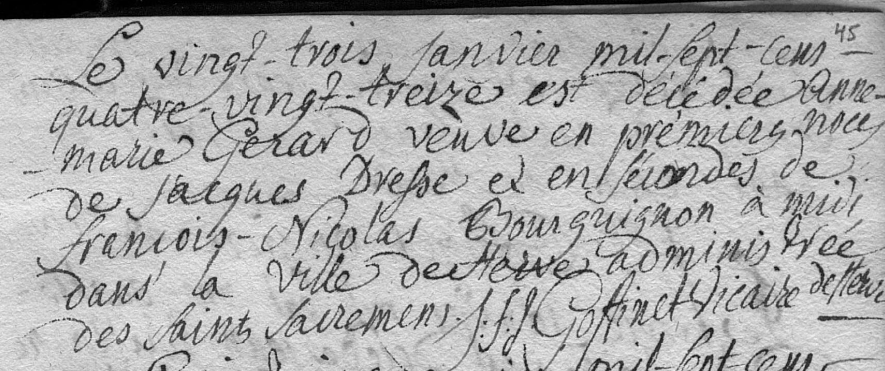 45
Le vingt-trois Janvier mil-sept-cens
quatre-vingt-treize est décédée Anne-
-marie Gerard veuve en prémiers noces
de Jacques Dresse et en sécondes de
françois-Nicolas Bourguignon à midi
dans la ville de Herve administrée
des saints sacremens. J: f: J Goffinet Vicaire de Herve
mil-sept-cens